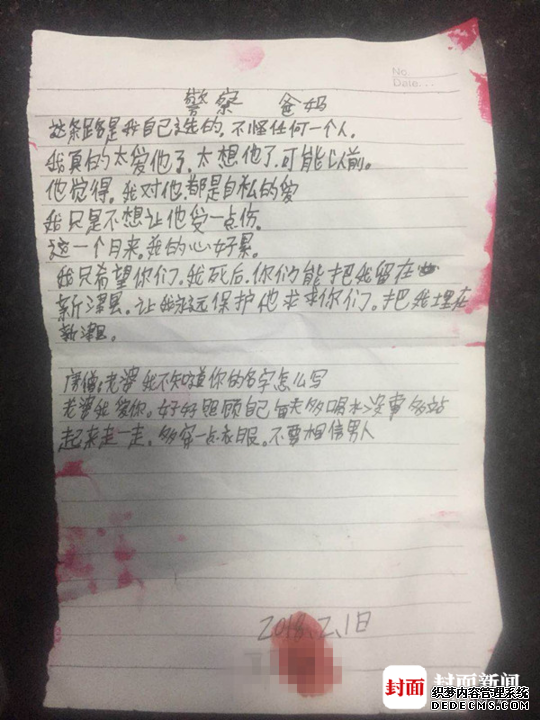 No.
Date...
警察 爸妈
这条路是我自己选的,不怪任何一个人.
我真的太爱他了,太想他了,可能以前。
他觉得.我对他.都是自私的爱
我只是不想让他受一点伤.
这一个月来,我的心好累。
我只希望你们.我死后.你们能把我留在
新津县.让我永远保护他求求你们.把我埋在
新津县.
老婆我不知道你的名字怎么写
老婆我爱你.好好照顾自己每天多喝水没事多站
起来走一走.多穿一点衣服.不要相信男人
2018.2.1日
封面 封面新闻
织梦内容管理系统
DEDECMS.COM